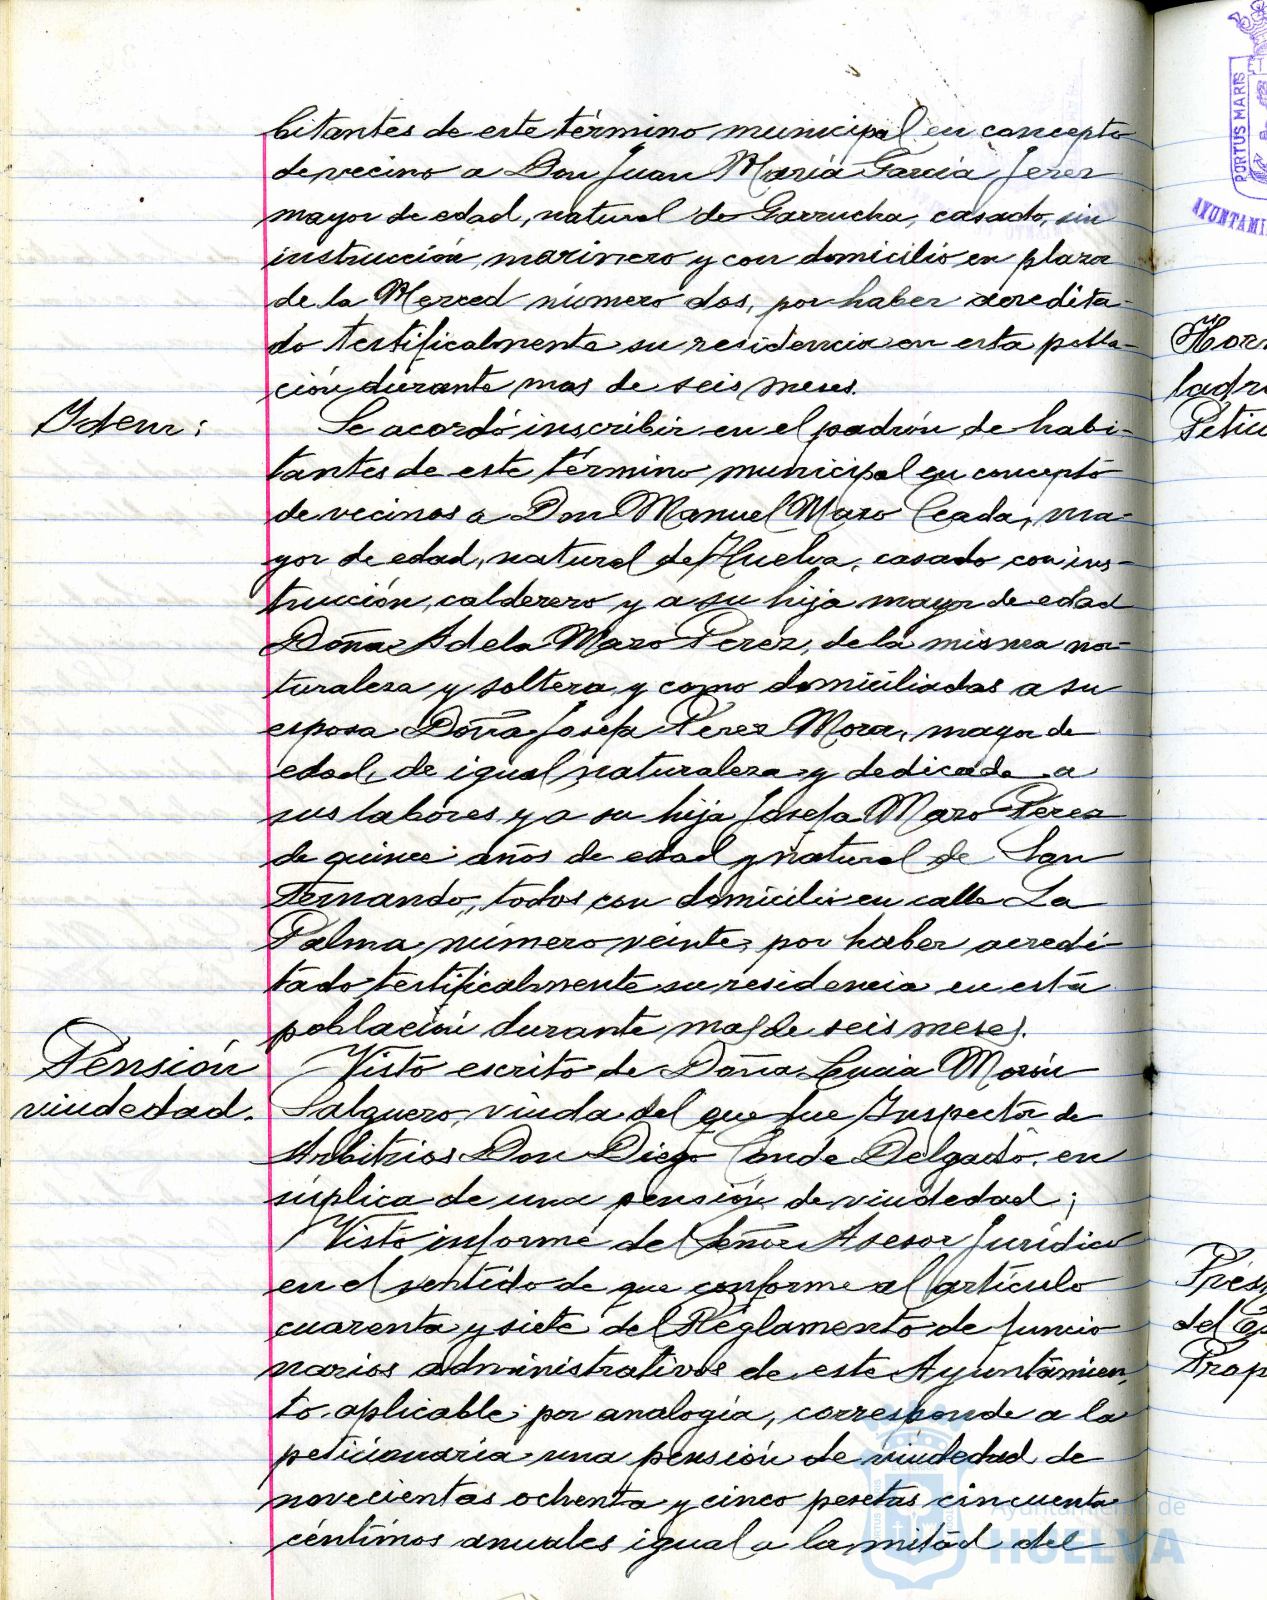 bitantes de este término municipal en concepto
de vecino a Don Juan María García Jerez
mayor de edad, natural de Garrucha, casado, sin
instrucción, marinero y con domicilio en plaza
de la Merced número dos, por haber acredita-
do testificalmente su residencia en esta pobla-
ción durante mas de seis meses.
Idem:
Se acordó inscribir en el padrón de habi-
tantes de este término municipal en concepto
de vecinos a Don Manuel Mazo Ceada, ma-
yor de edad, natural de Huelva, casado con ins-
trucción, calderero y a su hija mayor de edad
Doña Adela Mazo Perez, de la misma na-
turaleza y soltera, y como domiciliadas a su
esposa Doña Josefa Perez Mora, mayor de
edad, de igual naturaleza y dedicada a
sus labores y a su hija Josefa Mazo Perez
de quince años de edad y natural de San
Fernando, todos con domicilio en calle La
Palma número veinte, por haber acredi-
tado testificalmente su residencia en esta
población durante mas de seis meses.
Pensión
viudedad.
Visto escrito de Doña Lucia Morón
Salguero, viuda del que fue Inspector de
Arbitrios Don Diego Conde Delgado, en
súplica de una pensión de viudedad;
Visto informe del Señor Asesor Jurídico
en el sentido de que conforme al artículo
cuarenta y siete del Reglamento de funcio
narios administrativos de este Ayuntamien-
to, aplicable por analogía, corresponde a la
peticionaria una pensión de viudedad de
novecientas ochenta y cinco pesetas cincuenta
céntimos anuales igual a la mitad del
Ayuntamiento de
HUELVA
PORTUS MARIS